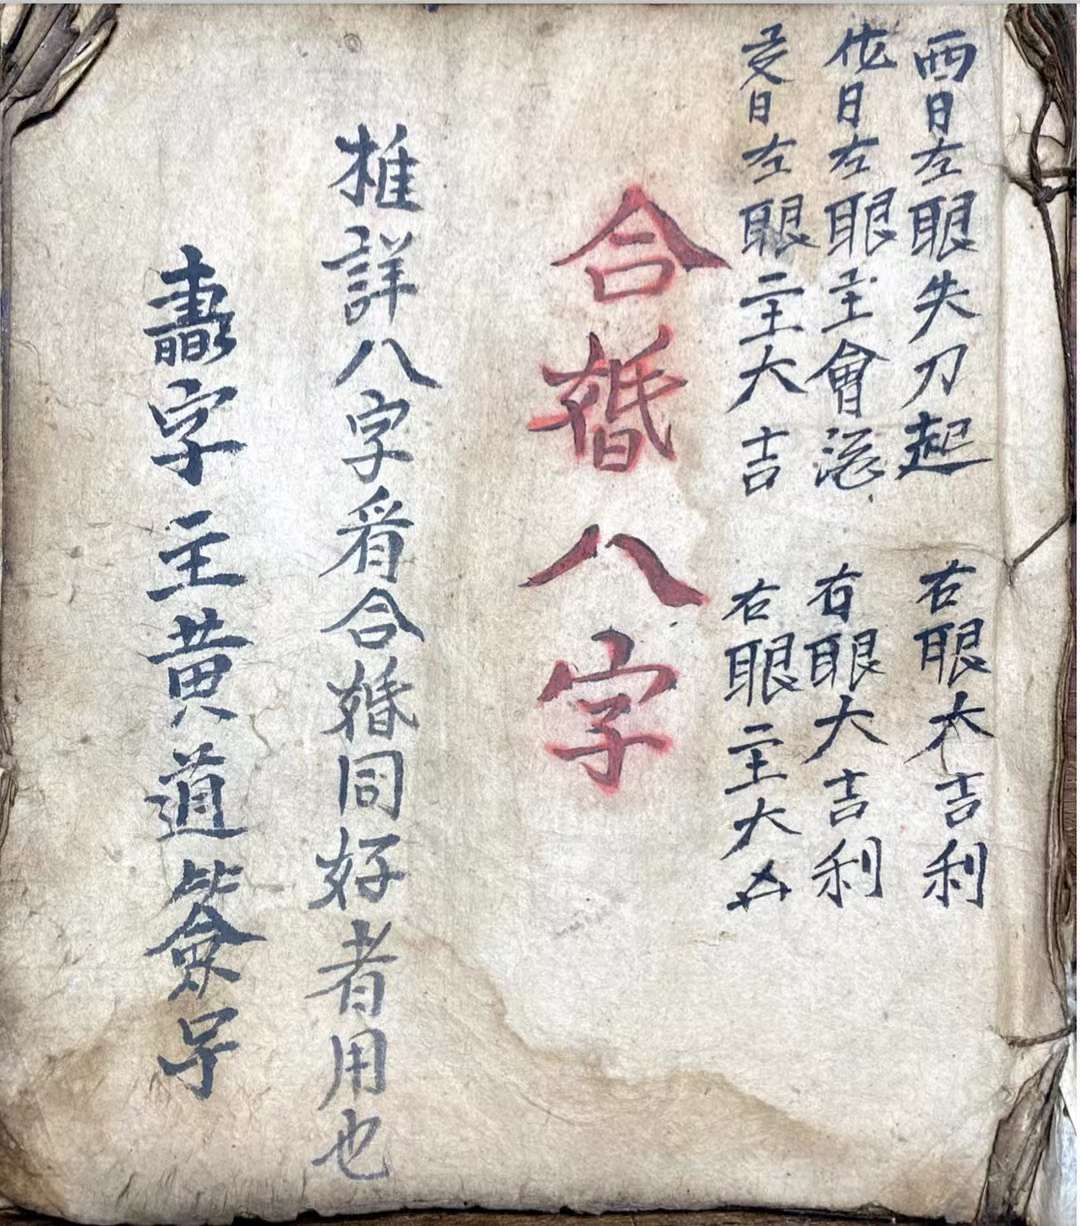 西日左眼失刀起 右眼大吉利
日左眼主會 右眼大吉利
亥日左眼主大吉 右眼主大凶
合婚八字
推詳八字看合婚同好者用也
字主黃道簽